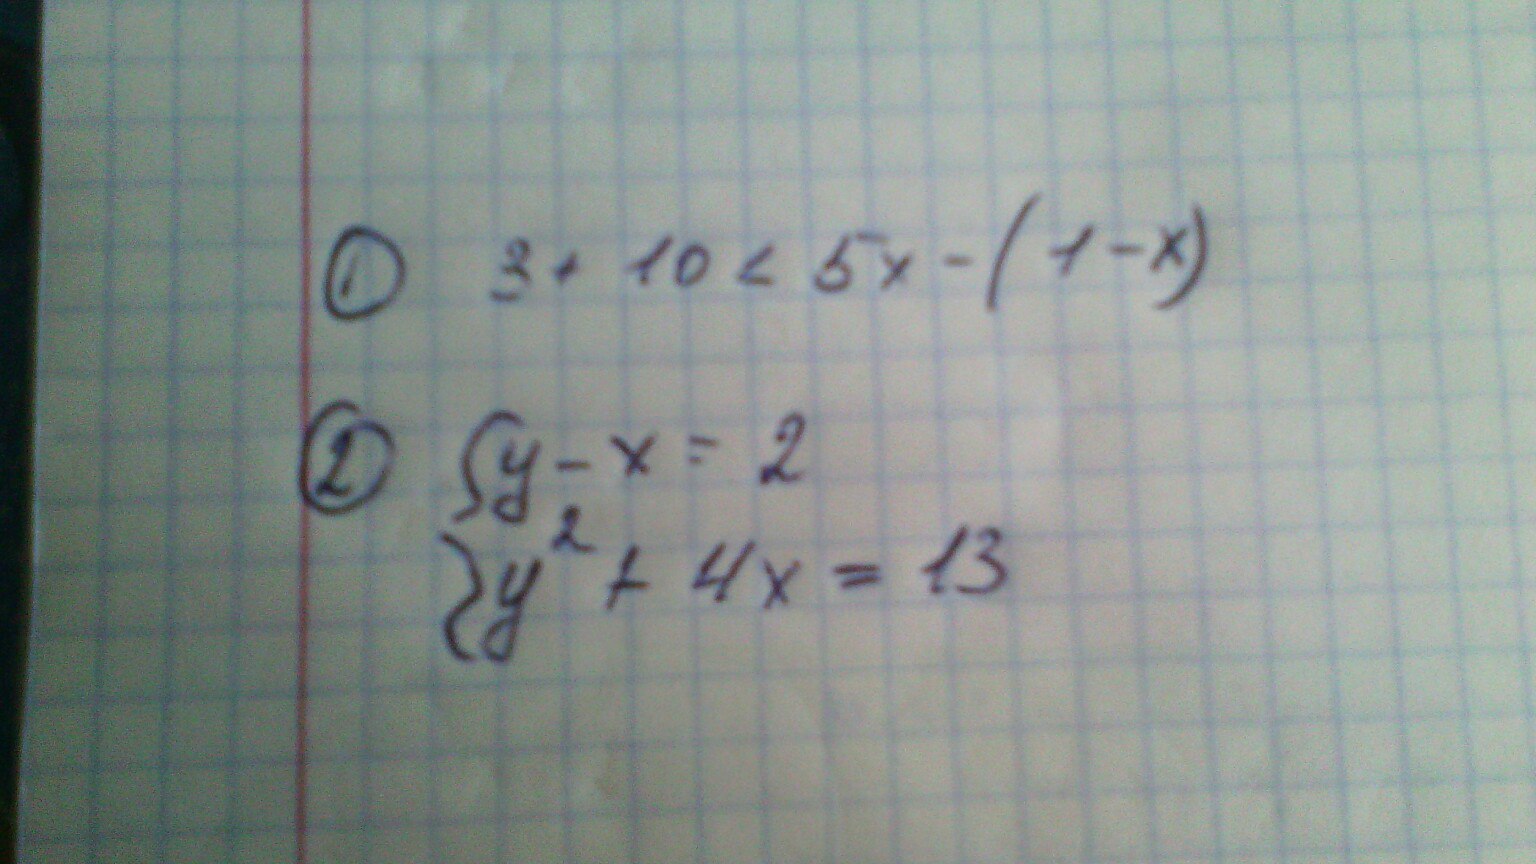 ① 3 + 10 < 5x - (1 - x)
② { y - x = 2
{ y² + 4x = 13